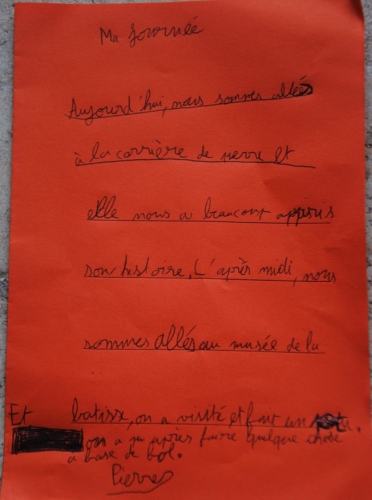 Ma journée
Aujourd'hui, nous sommes allés
à la carrière de verre et
elle nous a beaucout appirus
son histoire. L'après midi, nous
sommes allés au musée de la
Et batisse, on a visité et fait un
on a pu après faire quelque chose
a base de bol.
Pierre